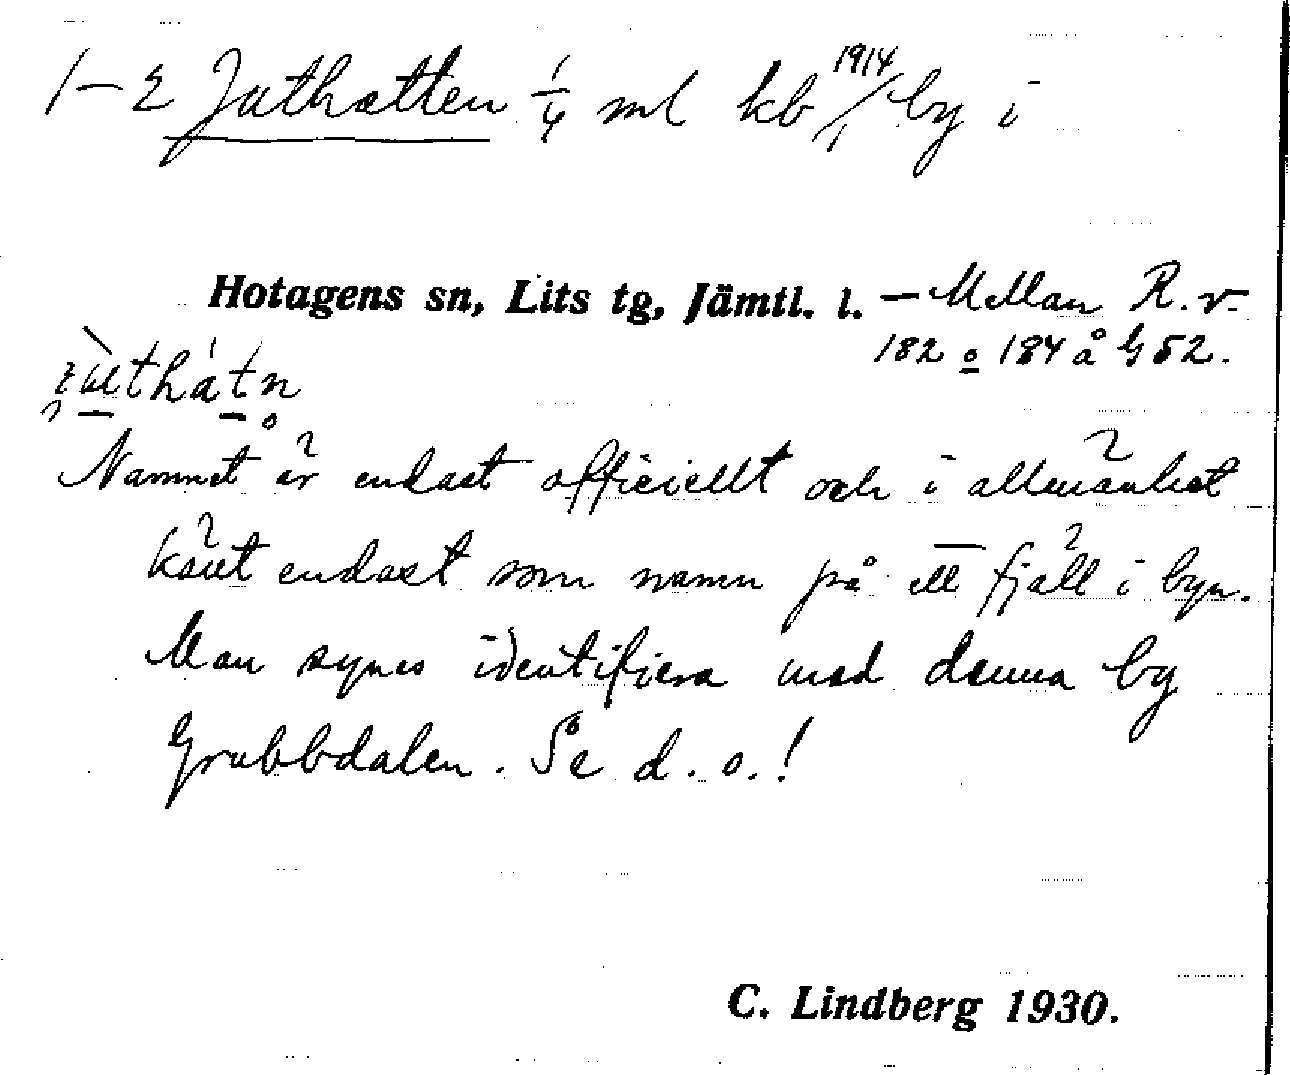 1–2 Juthatten 1/4 ml kb 1914/1 by i
Hotagens sn, Lits tg, Jämtl. l. – Mellan R.v.
182 o 184 å G 52.
Namnet är endast officiellt och i allmänhet
känt endast som namn på ett fjäll i byn.
Man synes identifiera med denna by
Grubbdalen. Se d. o.!
C. Lindberg 1930.